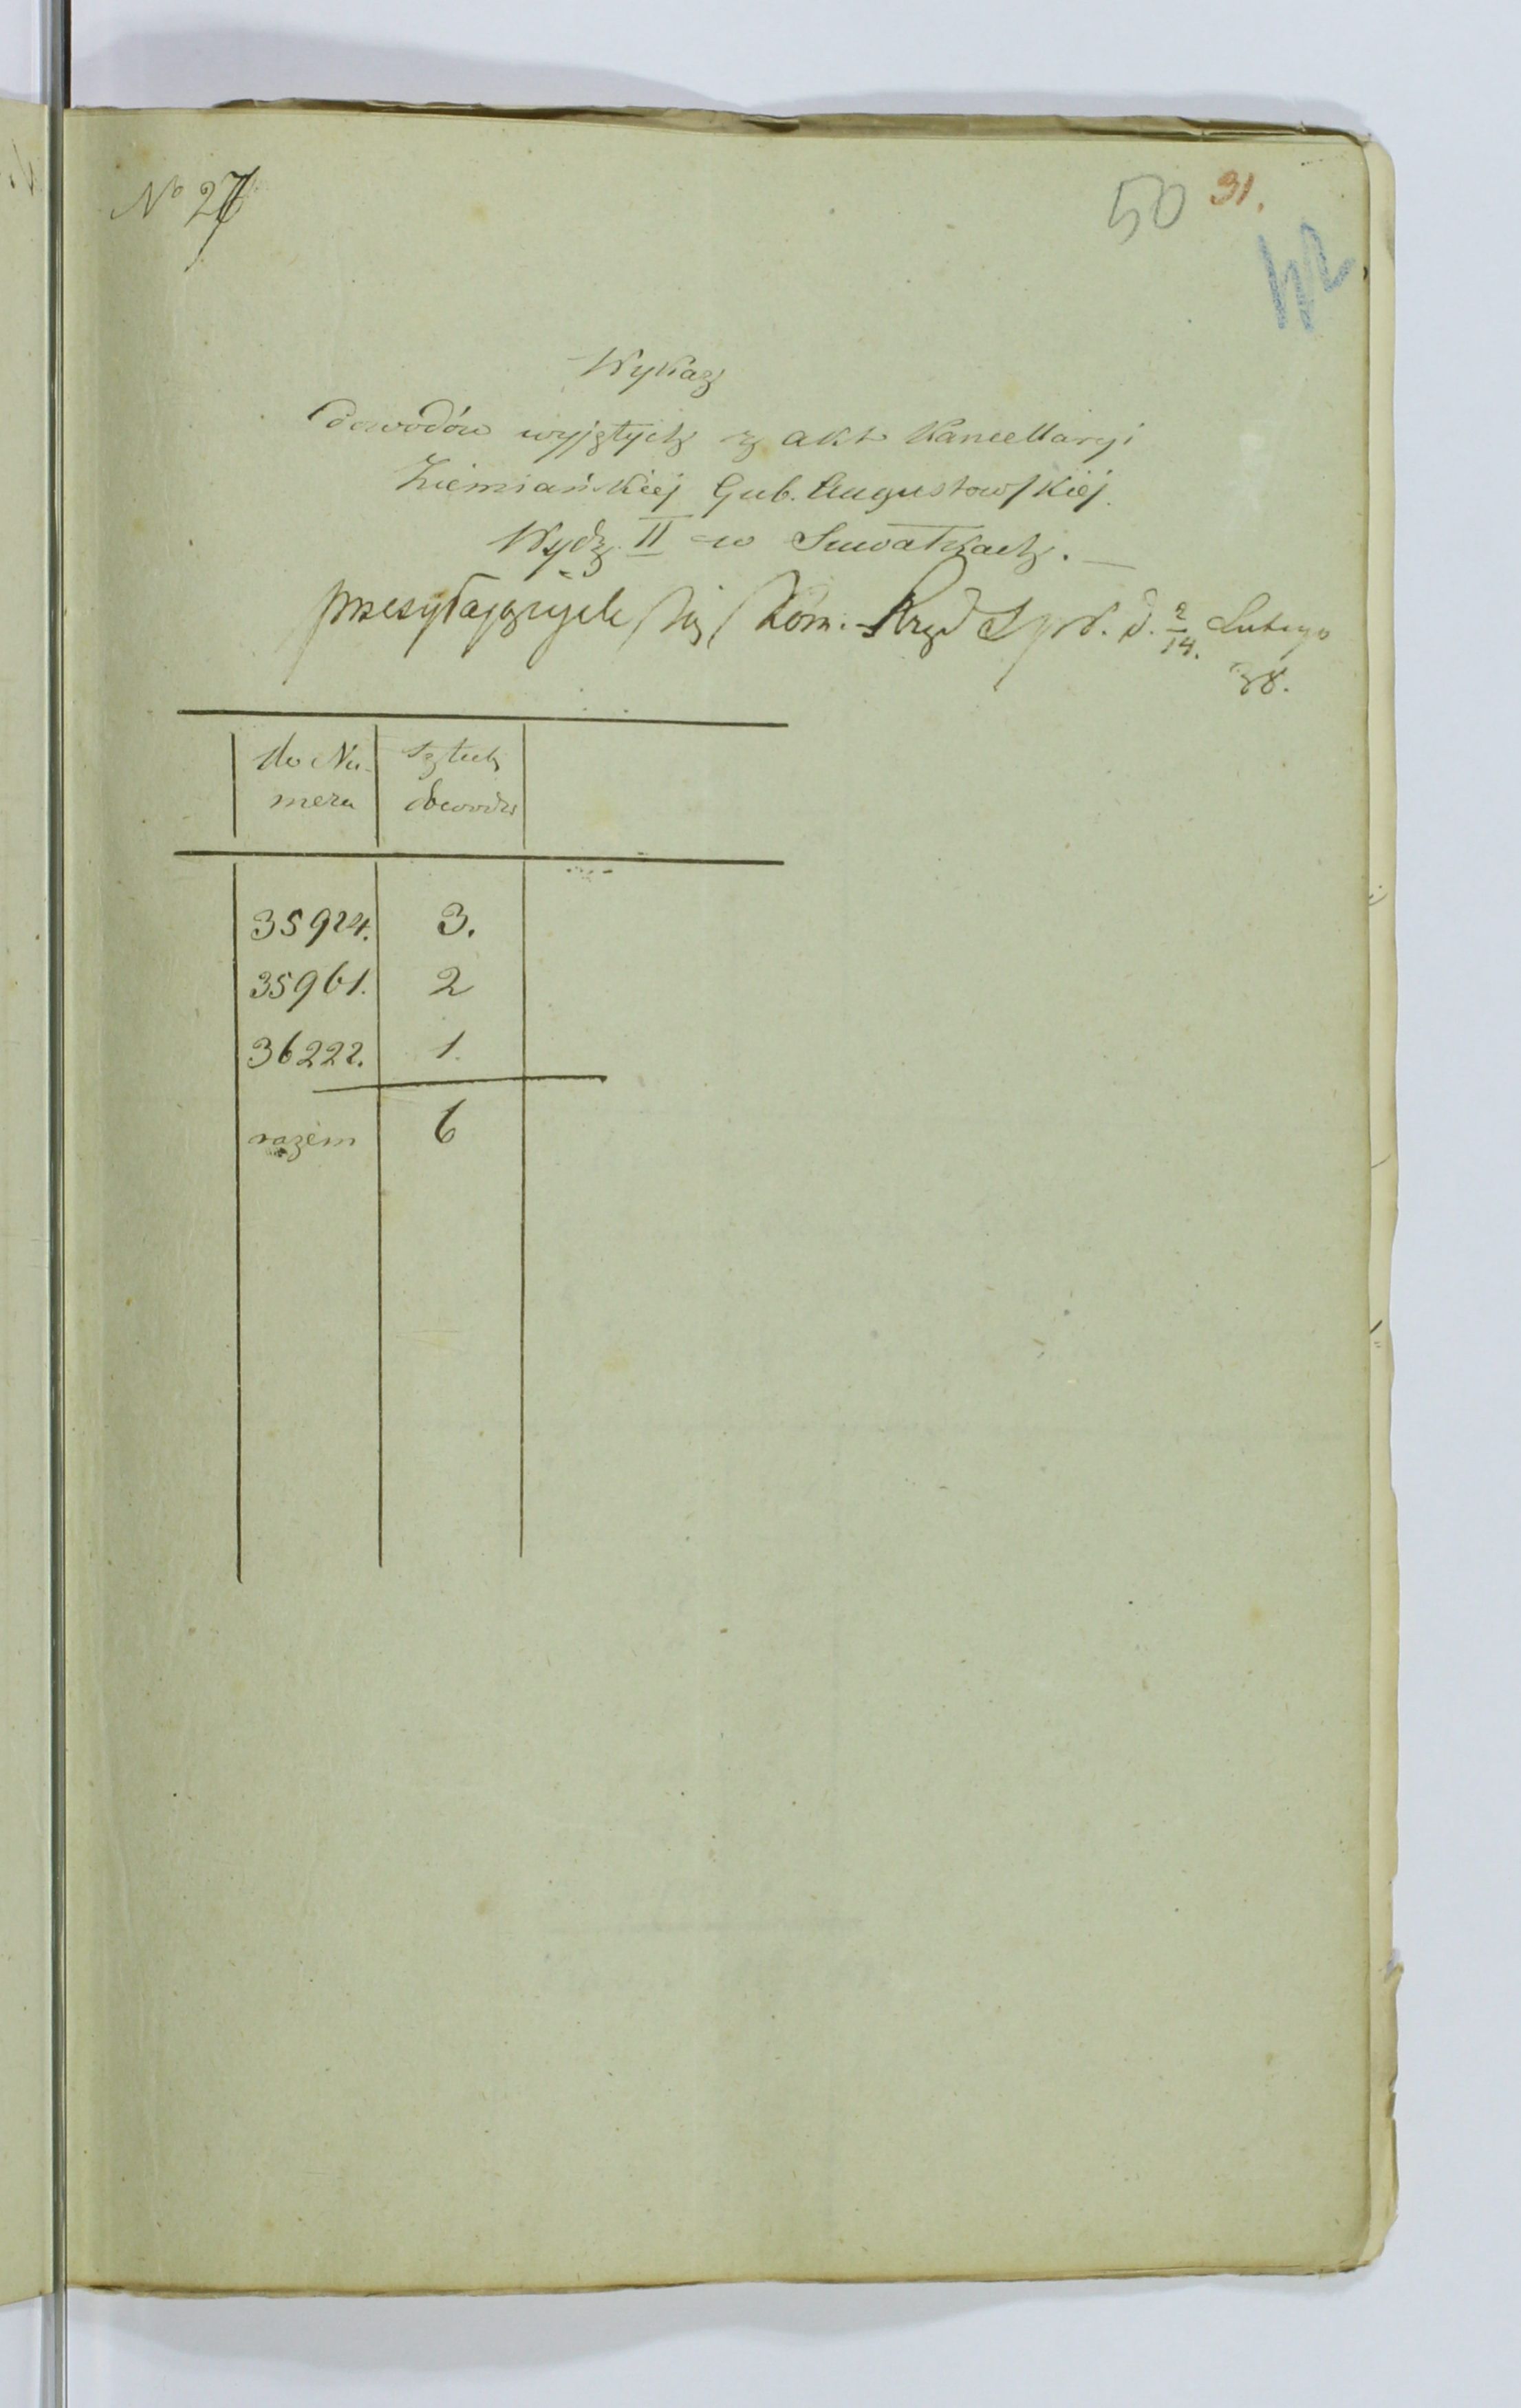 No 27
50 31.
42
Wykaz
dowodów wyjętych z akt Kancellaryi
Ziemiańskiej Gub. Augustowskiej.
Wydz. II w Suwałkach. —
przesyłających się Kom. Rząd Spr. d. 2/14. Lutego
38.
do Nu- sztuk
meru dowodów
35924. 3.
35961. 2
36222. 1.
razem 6